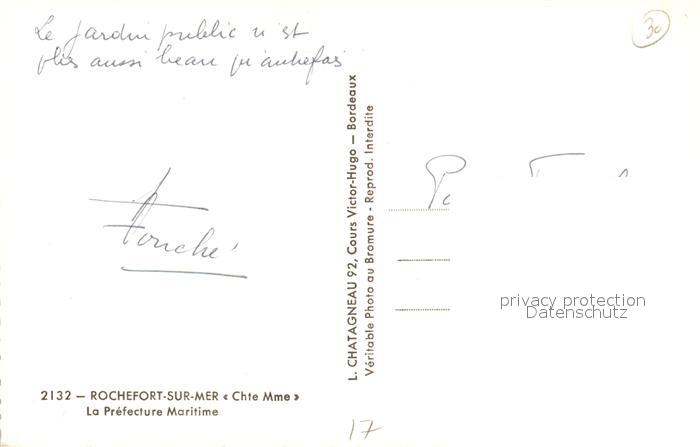 Le jardin public n'est
plus aussi beau qu'autrefois
30
L. CHATAGNEAU 92, Cours Victor-Hugo — Bordeaux
Véritable Photo au Bromure - Reprod. Interdite
privacy protection
Datenschutz
2132 — ROCHEFORT-SUR-MER « Chte Mme »
La Préfecture Maritime
17